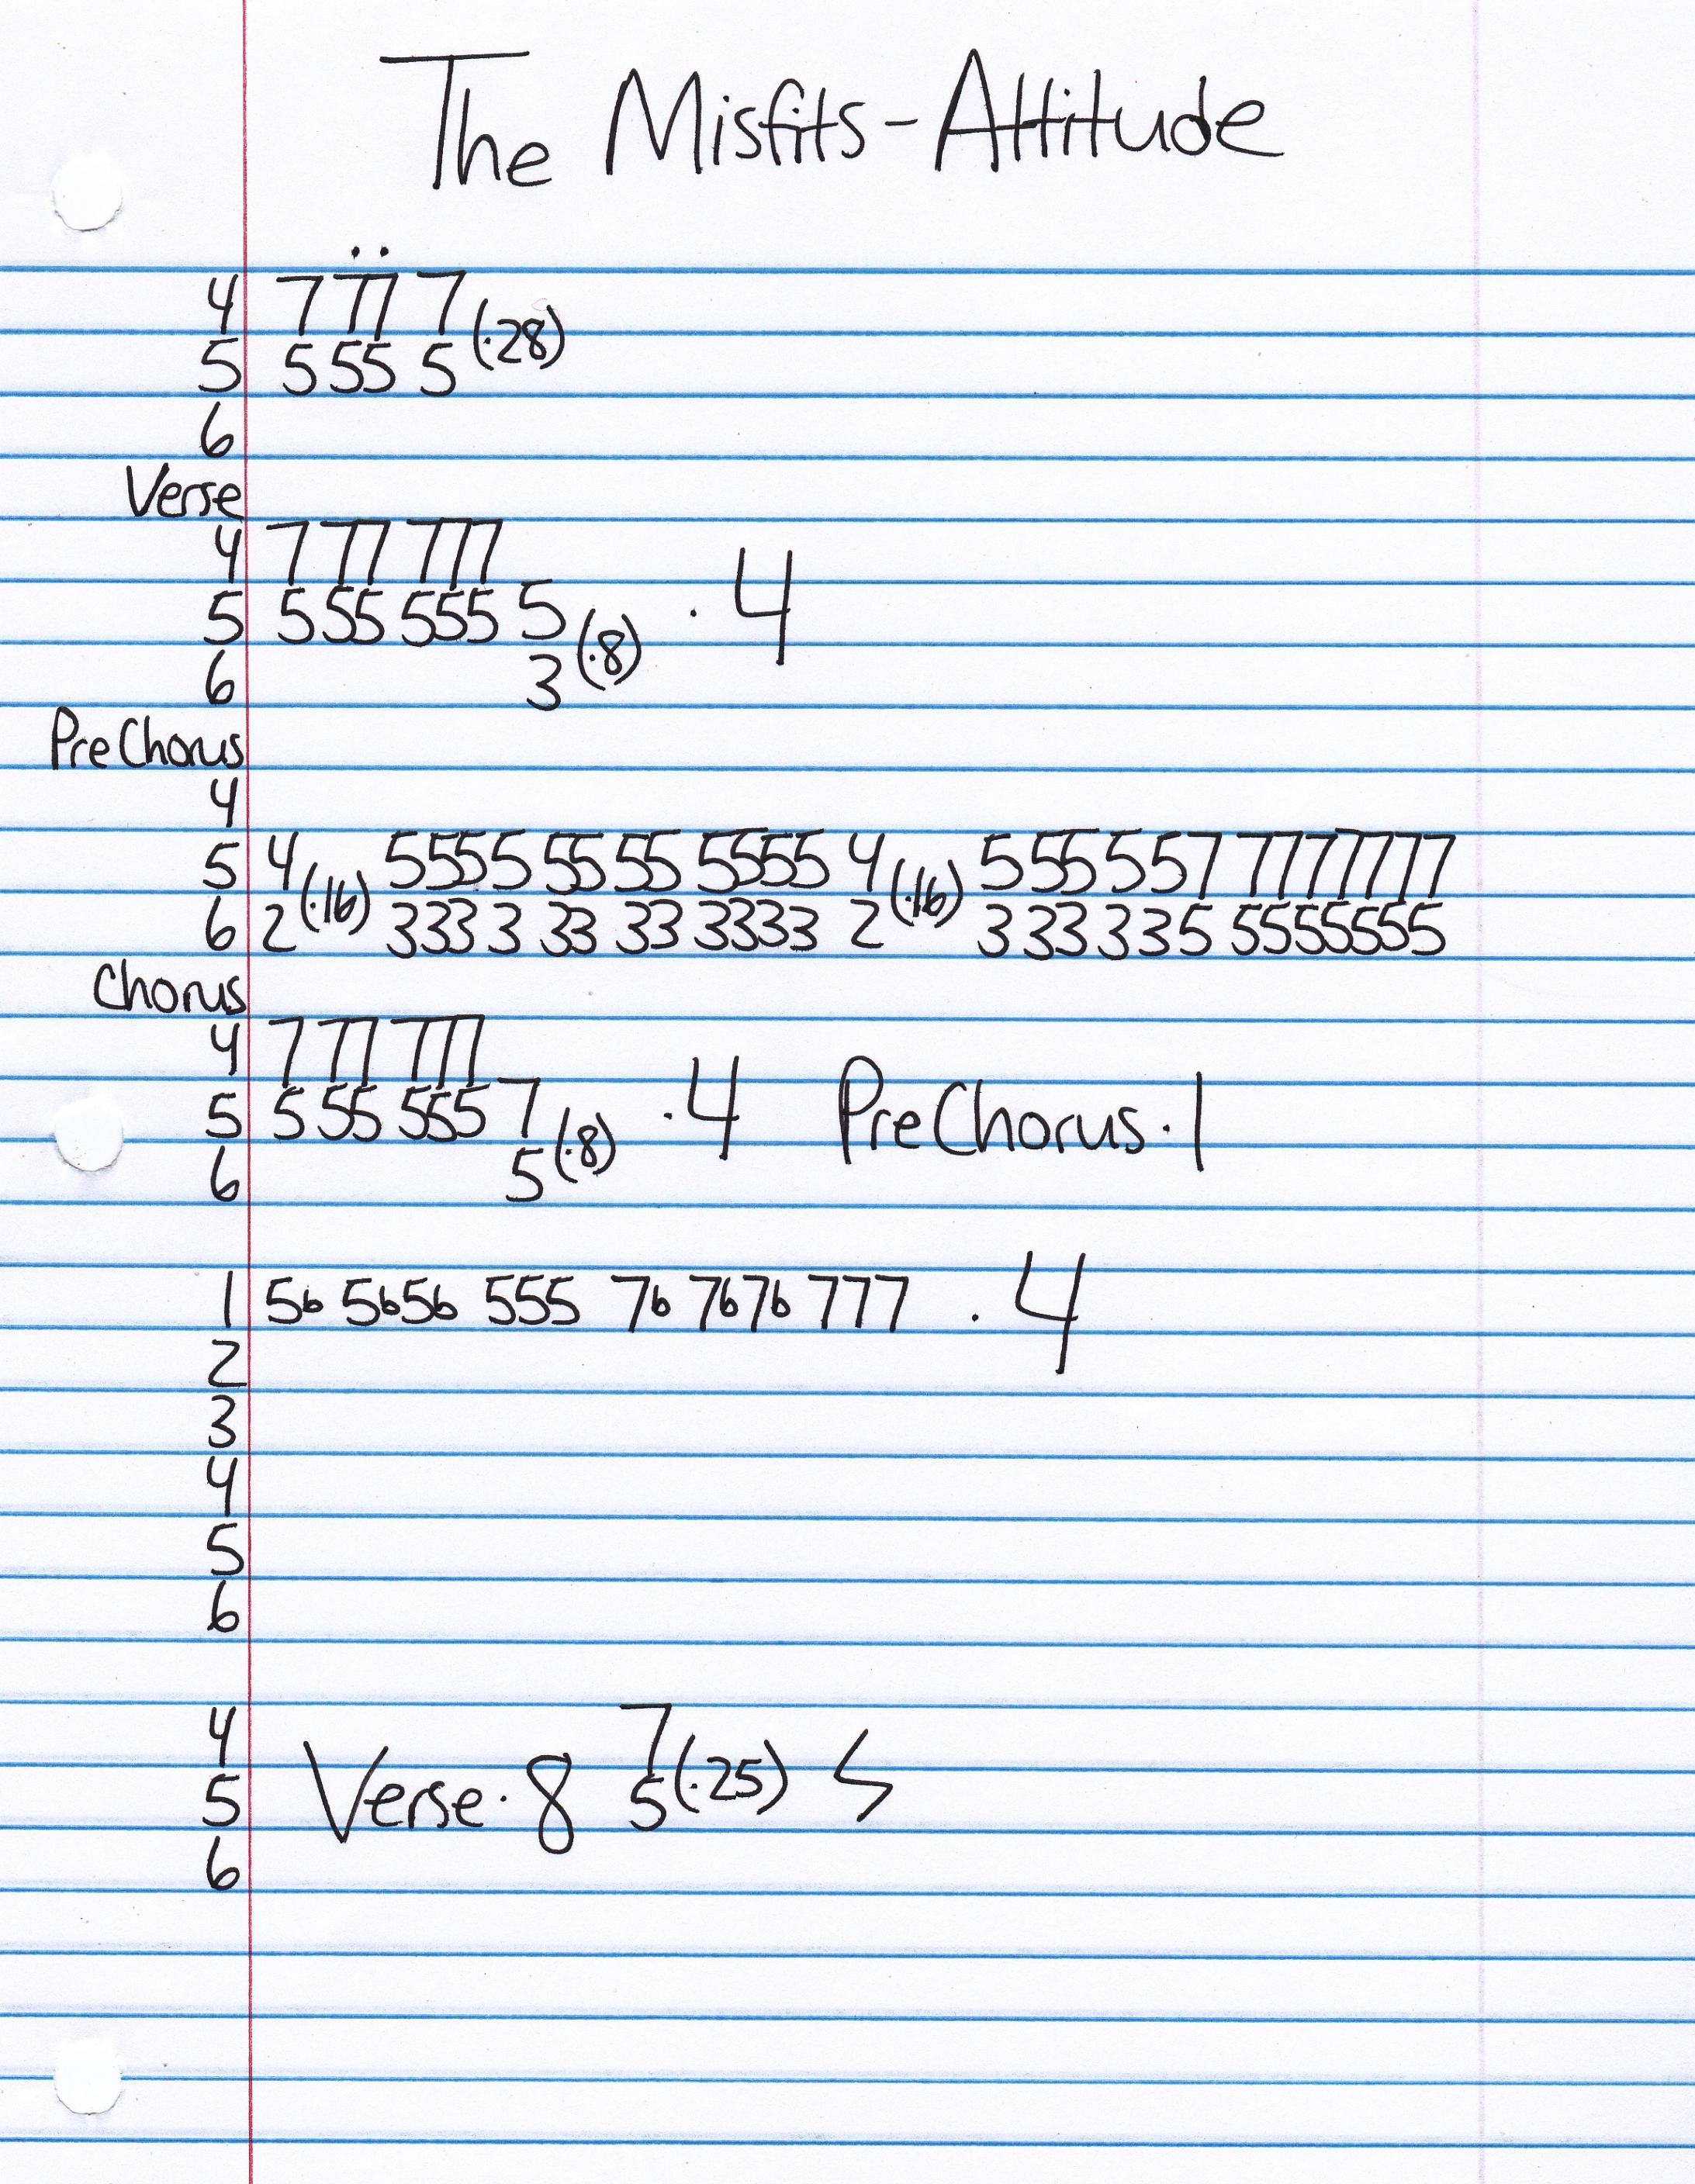 The Misfits-Attitude
4 7 77 7
5 5 55 5 (·28)
6
Verse
4 7 77 777
5 5 55 555 5 · 4
6 3 (·8)
PreChorus
4
5 4 (·16) 5555 55 55 5555 4 (·16) 5 555 5 57 7777777
6 2 333 3 33 33 3333 2 3 333 3 35 5555555
Chorus
4 7 77 777
5 5 55 555 7 · 4 PreChorus · 1
6 5 (·8)
1 56 5656 555 76 7676 777 · 4
2
3
4
5
6
4 7
5 Verse · 8 5 (·25)
6